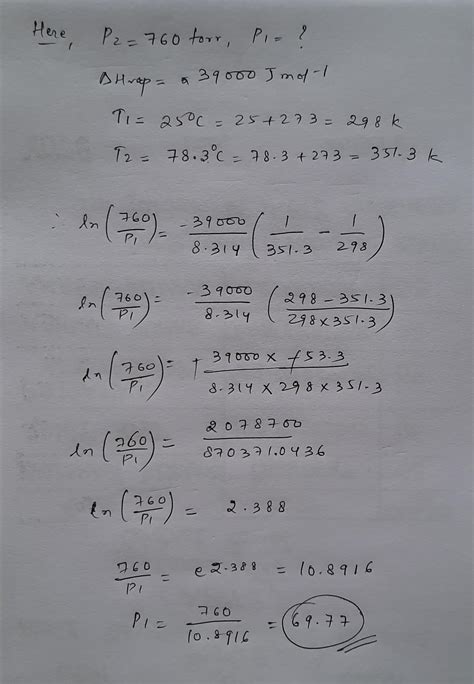 Here, P2 = 760 torr, P1 = ?
ΔHvap = 39000 J mol-1
T1 = 25°C = 25+273 = 298 k
T2 = 78.3°C = 78.3+273 = 351.3 k
∴ ln(760/P1) = -39000/8.314 (1/351.3 - 1/298)
ln(760/P1) = -39000/8.314 (298-351.3/298×351.3)
ln(760/P1) = +39000×+53.3/8.314×298×351.3
ln(760/P1) = 2078700/870371.0436
ln(760/P1) = 2.388
760/P1 = e2.388 = 10.8916
P1 = 760/10.8916 = 69.77